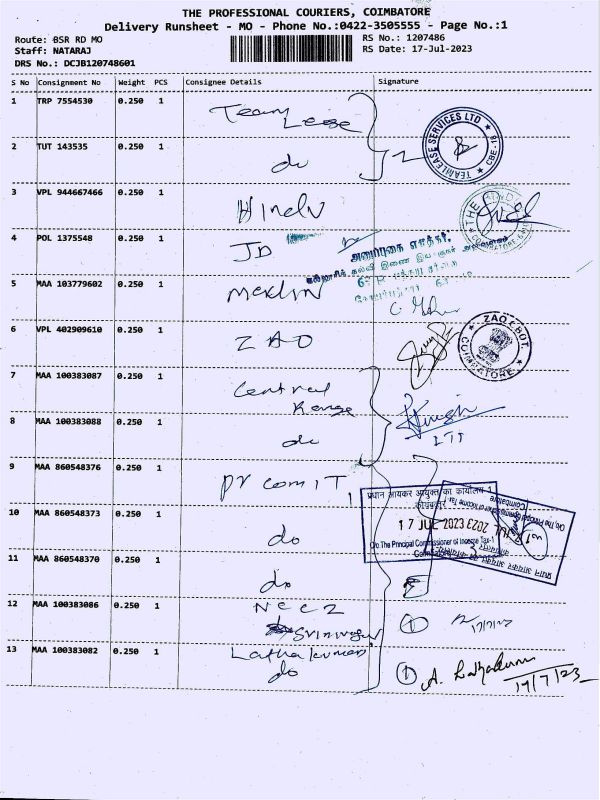 THE PROFESSIONAL COURIERS, COIMBATORE
Delivery Runsheet - MO - Phone No.:0422-3505555 - Page No.:1
Route: BSR RD MO
RS No.: 1207486
Staff: NATARAJ
RS Date: 17-Jul-2023
DRS No.: DCJB120748601
S No Consignment No Weight PCS Consignee Details Signature
1 TRP 7554530 0.250 1 Team Lease
2 TUT 143535 0.250 1 do
TEAMLEASE SERVICES LTD * CBE-18 *
3 VPL 944667466 0.250 1 Hindu
4 POL 1375548 0.250 1 JD
5 MAA 103779602 0.250 1
6 VPL 402909610 0.250 1 ZAO
ZAO, CBOT. * COIMBATORE *
7 MAA 100383087 0.250 1 Central Range
8 MAA 100383088 0.250 1 do
9 MAA 860548376 0.250 1 pr com IT, 1
प्रधान आयकर आयुक्त का कार्यालय 1
10 MAA 860548373 0.250 1 do
17 JUL 2023
O/o.The Principal Commissioner of Income Tax-1
11 MAA 860548370 0.250 1 do
12 MAA 100383086 0.250 1
13 MAA 100383082 0.250 1 Lathakumari
do
1 A. Lathakumari
17/7/23